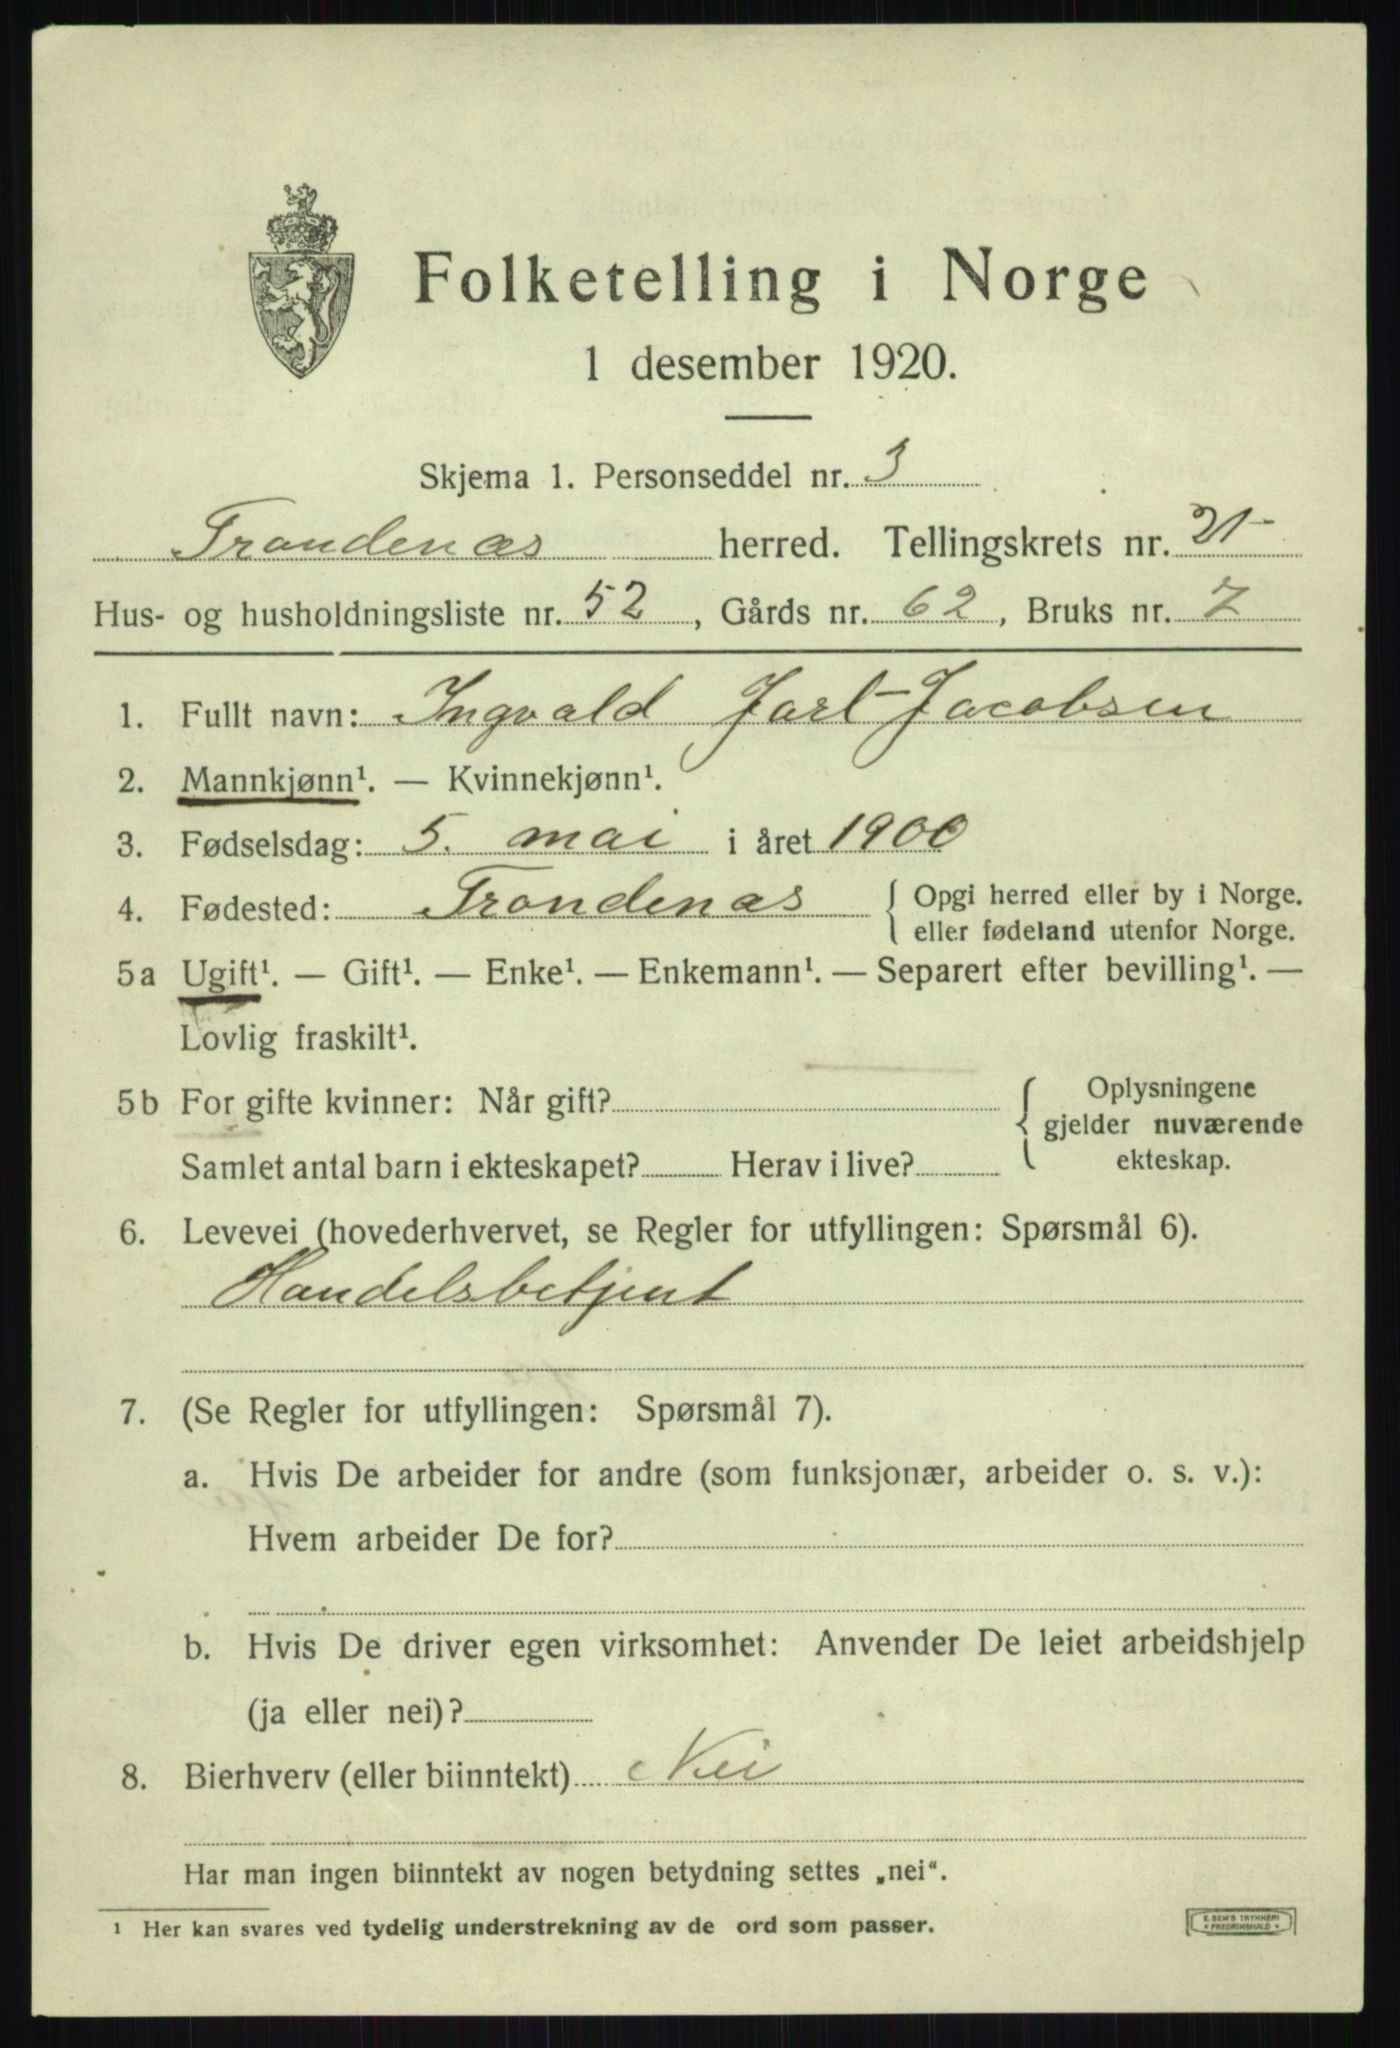 Folketelling i Norge
1 desember 1920.
Skjema 1. Personseddel nr. 3
Trondenæs herred. Tellingskrets nr. 21
Hus- og husholdningsliste nr. 52, Gårds nr. 62, Bruks nr. 7
1. Fullt navn: Ingvald Jarl Jacobsen
2. Mannkjønn¹. — Kvinnekjønn¹.
3. Fødselsdag: 5. mai i året 1900
4. Fødested: Trondenæs { Opgi herred eller by i Norge.
eller fødeland utenfor Norge.
5a Ugift¹. — Gift¹. — Enke¹. — Enkemann¹. — Separert efter bevilling¹. —
Lovlig fraskilt¹.
5b For gifte kvinner: Når gift? { Oplysningene
gjelder nuværende
Samlet antal barn i ekteskapet? Herav i live? ekteskap.
6. Levevei (hovederhvervet, se Regler for utfyllingen: Spørsmål 6).
Handelsbetjent
7. (Se Regler for utfyllingen: Spørsmål 7).
a. Hvis De arbeider for andre (som funksjonær, arbeider o. s. v.):
Hvem arbeider De for?
b. Hvis De driver egen virksomhet: Anvender De leiet arbeidshjelp
(ja eller nei)?
8. Bierhverv (eller biinntekt) Nei
Har man ingen biinntekt av nogen betydning settes „nei".
¹ Her kan svares ved tydelig understrekning av de ord som passer.
E. SEM'S TRYKKERI
* FREDRIKSHALD *